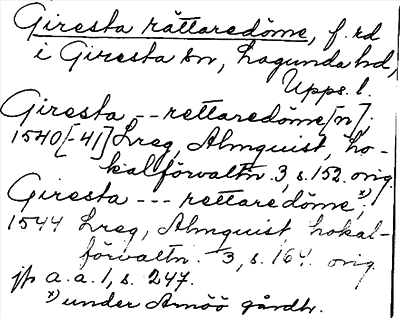 Giresta rättaredöme, f. rd
i Giresta sn, Lagunda hd,
Upps. l.
Giresta -- rettaredöme[n],
1540[-41] Lreg, Almquist, Lo-
kalförvaltn. 3, s. 152. orig.
Giresta --- rettaredöme, x)
1544 Lreg, Almquist, Lokal-
förvaltn. 3, s. 164. orig.
jfr a. a. 1, s. 247.
x) under Arnöö gårdbr.